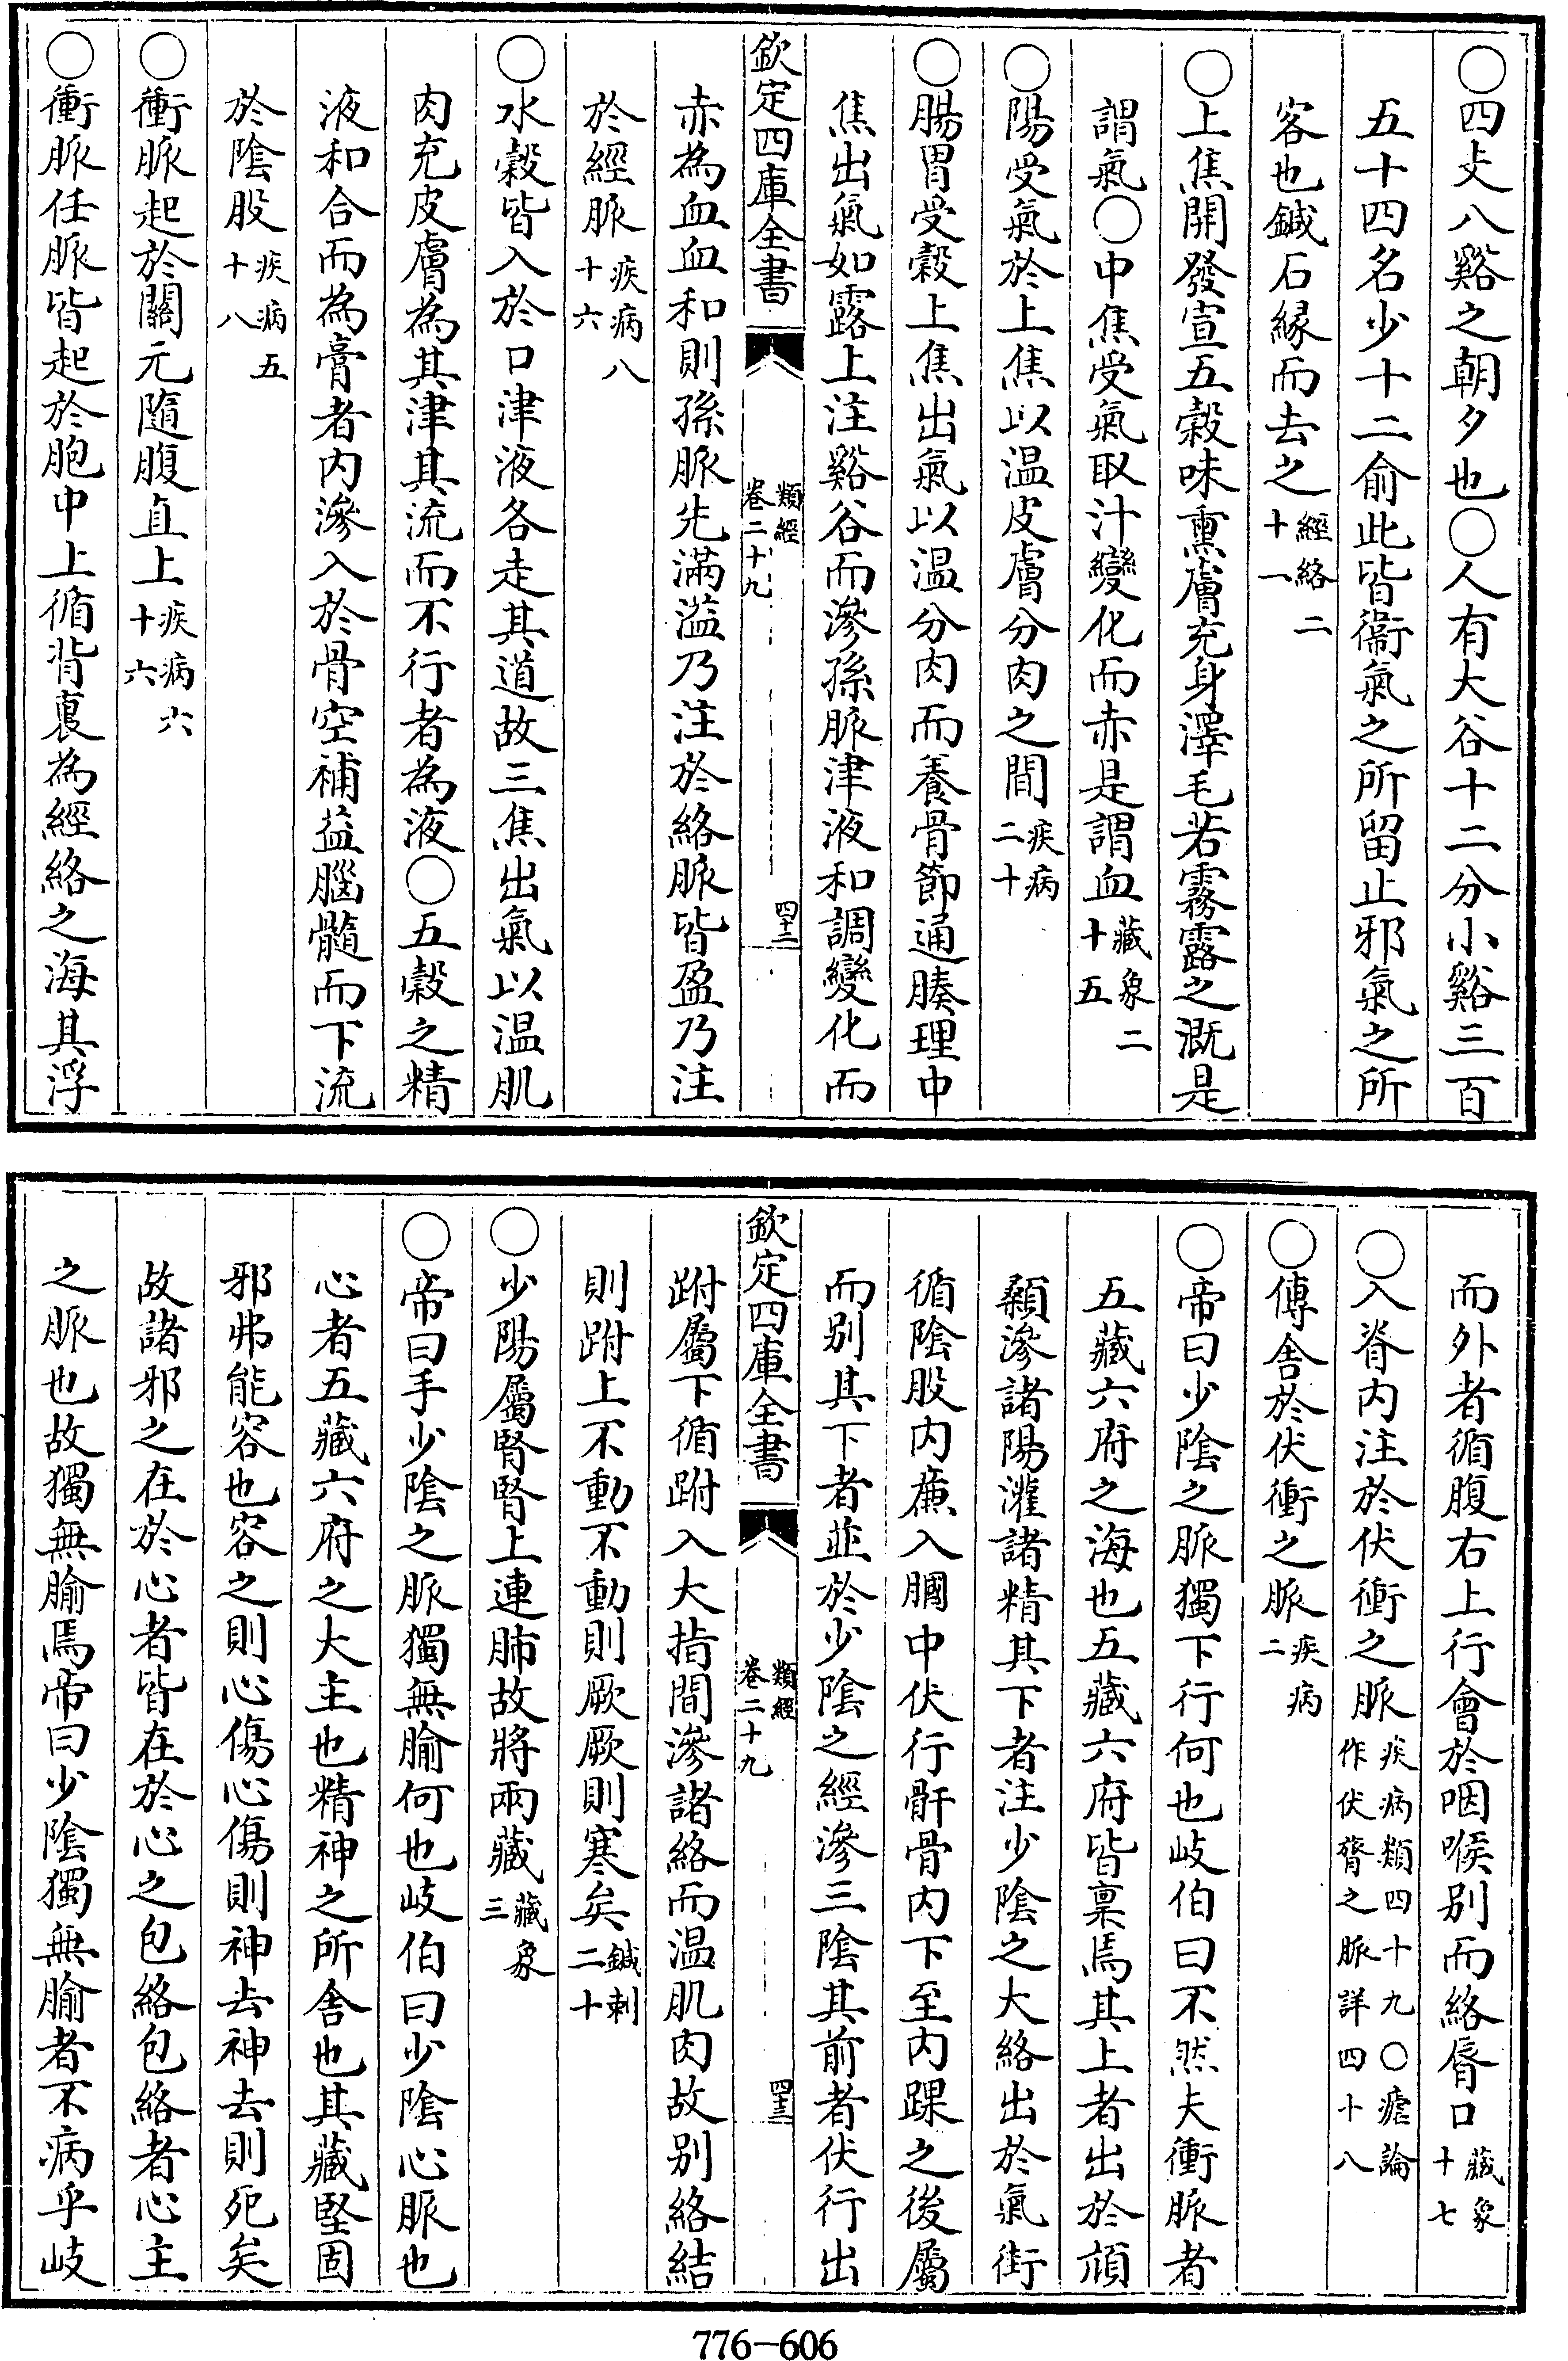 〇四支八谿之朝夕也〇人有大谷十二分小谿三百
五十四名少十二俞此皆衞氣之所留止邪氣之所
客也鍼石緣而去之經絡二十一
〇上焦開發宣五穀味熏膚充身澤毛若霧露之溉是
謂氣〇中焦受氣取汁變化而赤是謂血藏象二十五
〇陽受氣於上焦以温皮膚分肉之間疾病二十
〇腸胃受穀上焦出氣以温分肉而養骨節通腠理中
焦出氣如露上注谿谷而滲孫脈津液和調變化而
欽定四庫全書 類經 卷二十九 四十二
赤為血血和則孫脈先滿溢乃注於絡脈皆盈乃注
於經脈疾病八十六
〇水穀皆入於口津液各走其道故三焦出氣以温肌
肉充皮膚為其津其流而不行者為液〇五穀之精
液和合而為膏者内滲入於骨空補益腦髓而下流
於陰股疾病五十八
〇衝脈起於關元隨腹直上疾病六十六
〇衝脈任脈皆起於胞中上循背裏為經絡之海其浮
而外者循腹右上行會於咽喉别而絡脣口藏象十七
〇入脊内注於伏衝之脈疾病類四十九〇瘧論作伏膂之脈詳四十八
〇傳舍於伏衝之脈疾病二
〇帝曰少陰之脈獨下行何也岐伯曰不然夫衝脈者
五藏六府之海也五藏六府皆稟焉其上者出於頏
顙滲諸陽灌諸精其下者注少陰之大絡出於氣街
循陰股内亷入膕中伏行骭骨内下至内踝之後屬
而别其下者並於少陰之經滲三陰其前者伏行出
欽定四庫全書 類經 卷二十九 四十三
跗屬下循跗入大指間滲諸絡而温肌肉故别絡結
則跗上不動不動則厥厥則寒矣鍼刺二十
〇少陽屬腎腎上連肺故將兩藏藏象三
〇帝曰手少陰之脈獨無腧何也岐伯曰少陰心脈也
心者五藏六府之大主也精神之所舍也其藏堅固
邪弗能容也容之則心傷心傷則神去神去則死矣
故諸邪之在於心者皆在於心之包絡包絡者心主
之脈也故獨無腧焉帝曰少陰獨無腧者不病乎岐
776-606